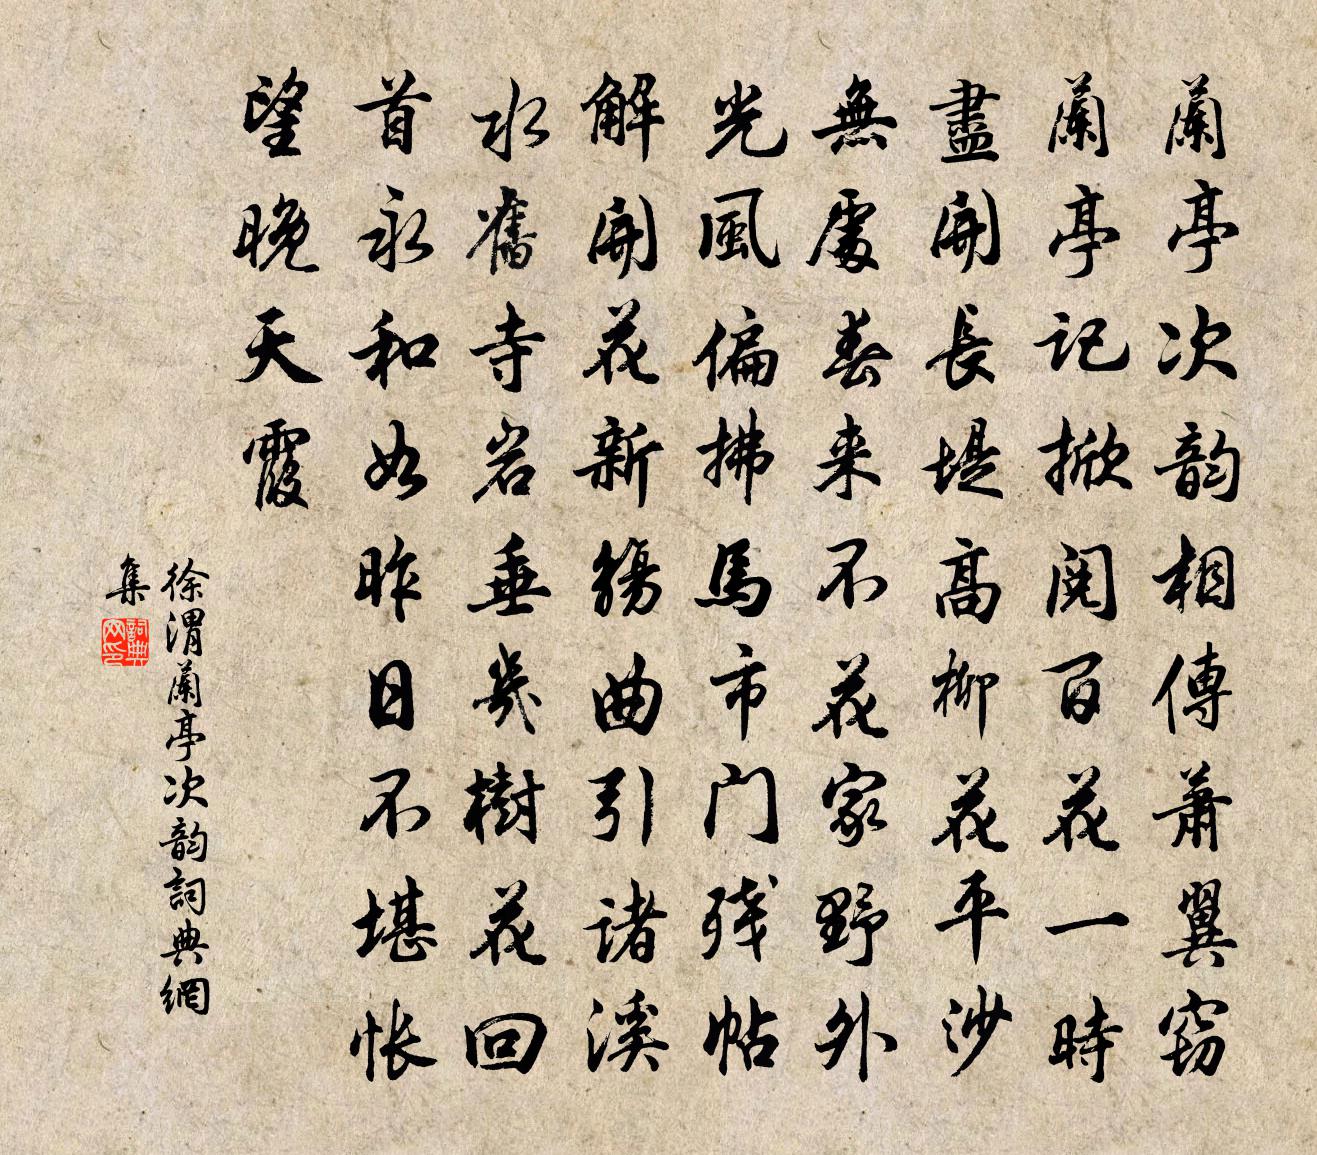 蘭亭次韵相傳蕭翼窃
蘭亭記掀閱百花一時
盡開長堤高柳花平沙
無處春来不花家野外
光風偏拂馬市门残帖
解開花新觴曲引諸溪
水舊寺岩垂幾樹花回
首永和如昨日不堪怅
望晚天霞
徐渭蘭亭次韵詞典網
集
詞典
网印